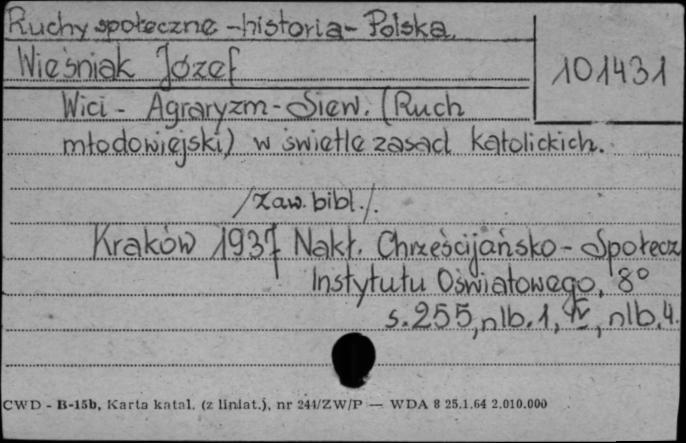 Ruchy społeczne - historia - Polska.
Wieśniak Józef
101431
Wici - Agraryzm - Siew. (Ruch
młodowiejski) w świetle zasad katolickich.
/Zaw. bibl./.
Kraków 1937 Nakł. Chrześcijańsko - Społecz
Instytutu Oświatowego, 8°
s. 255, nlb. 1, IV, nlb. 4.
CWD - B-15b, Karta katal. (z liniat.), nr 244/ZW/P — WDA 8 25.1.64 2.010.000